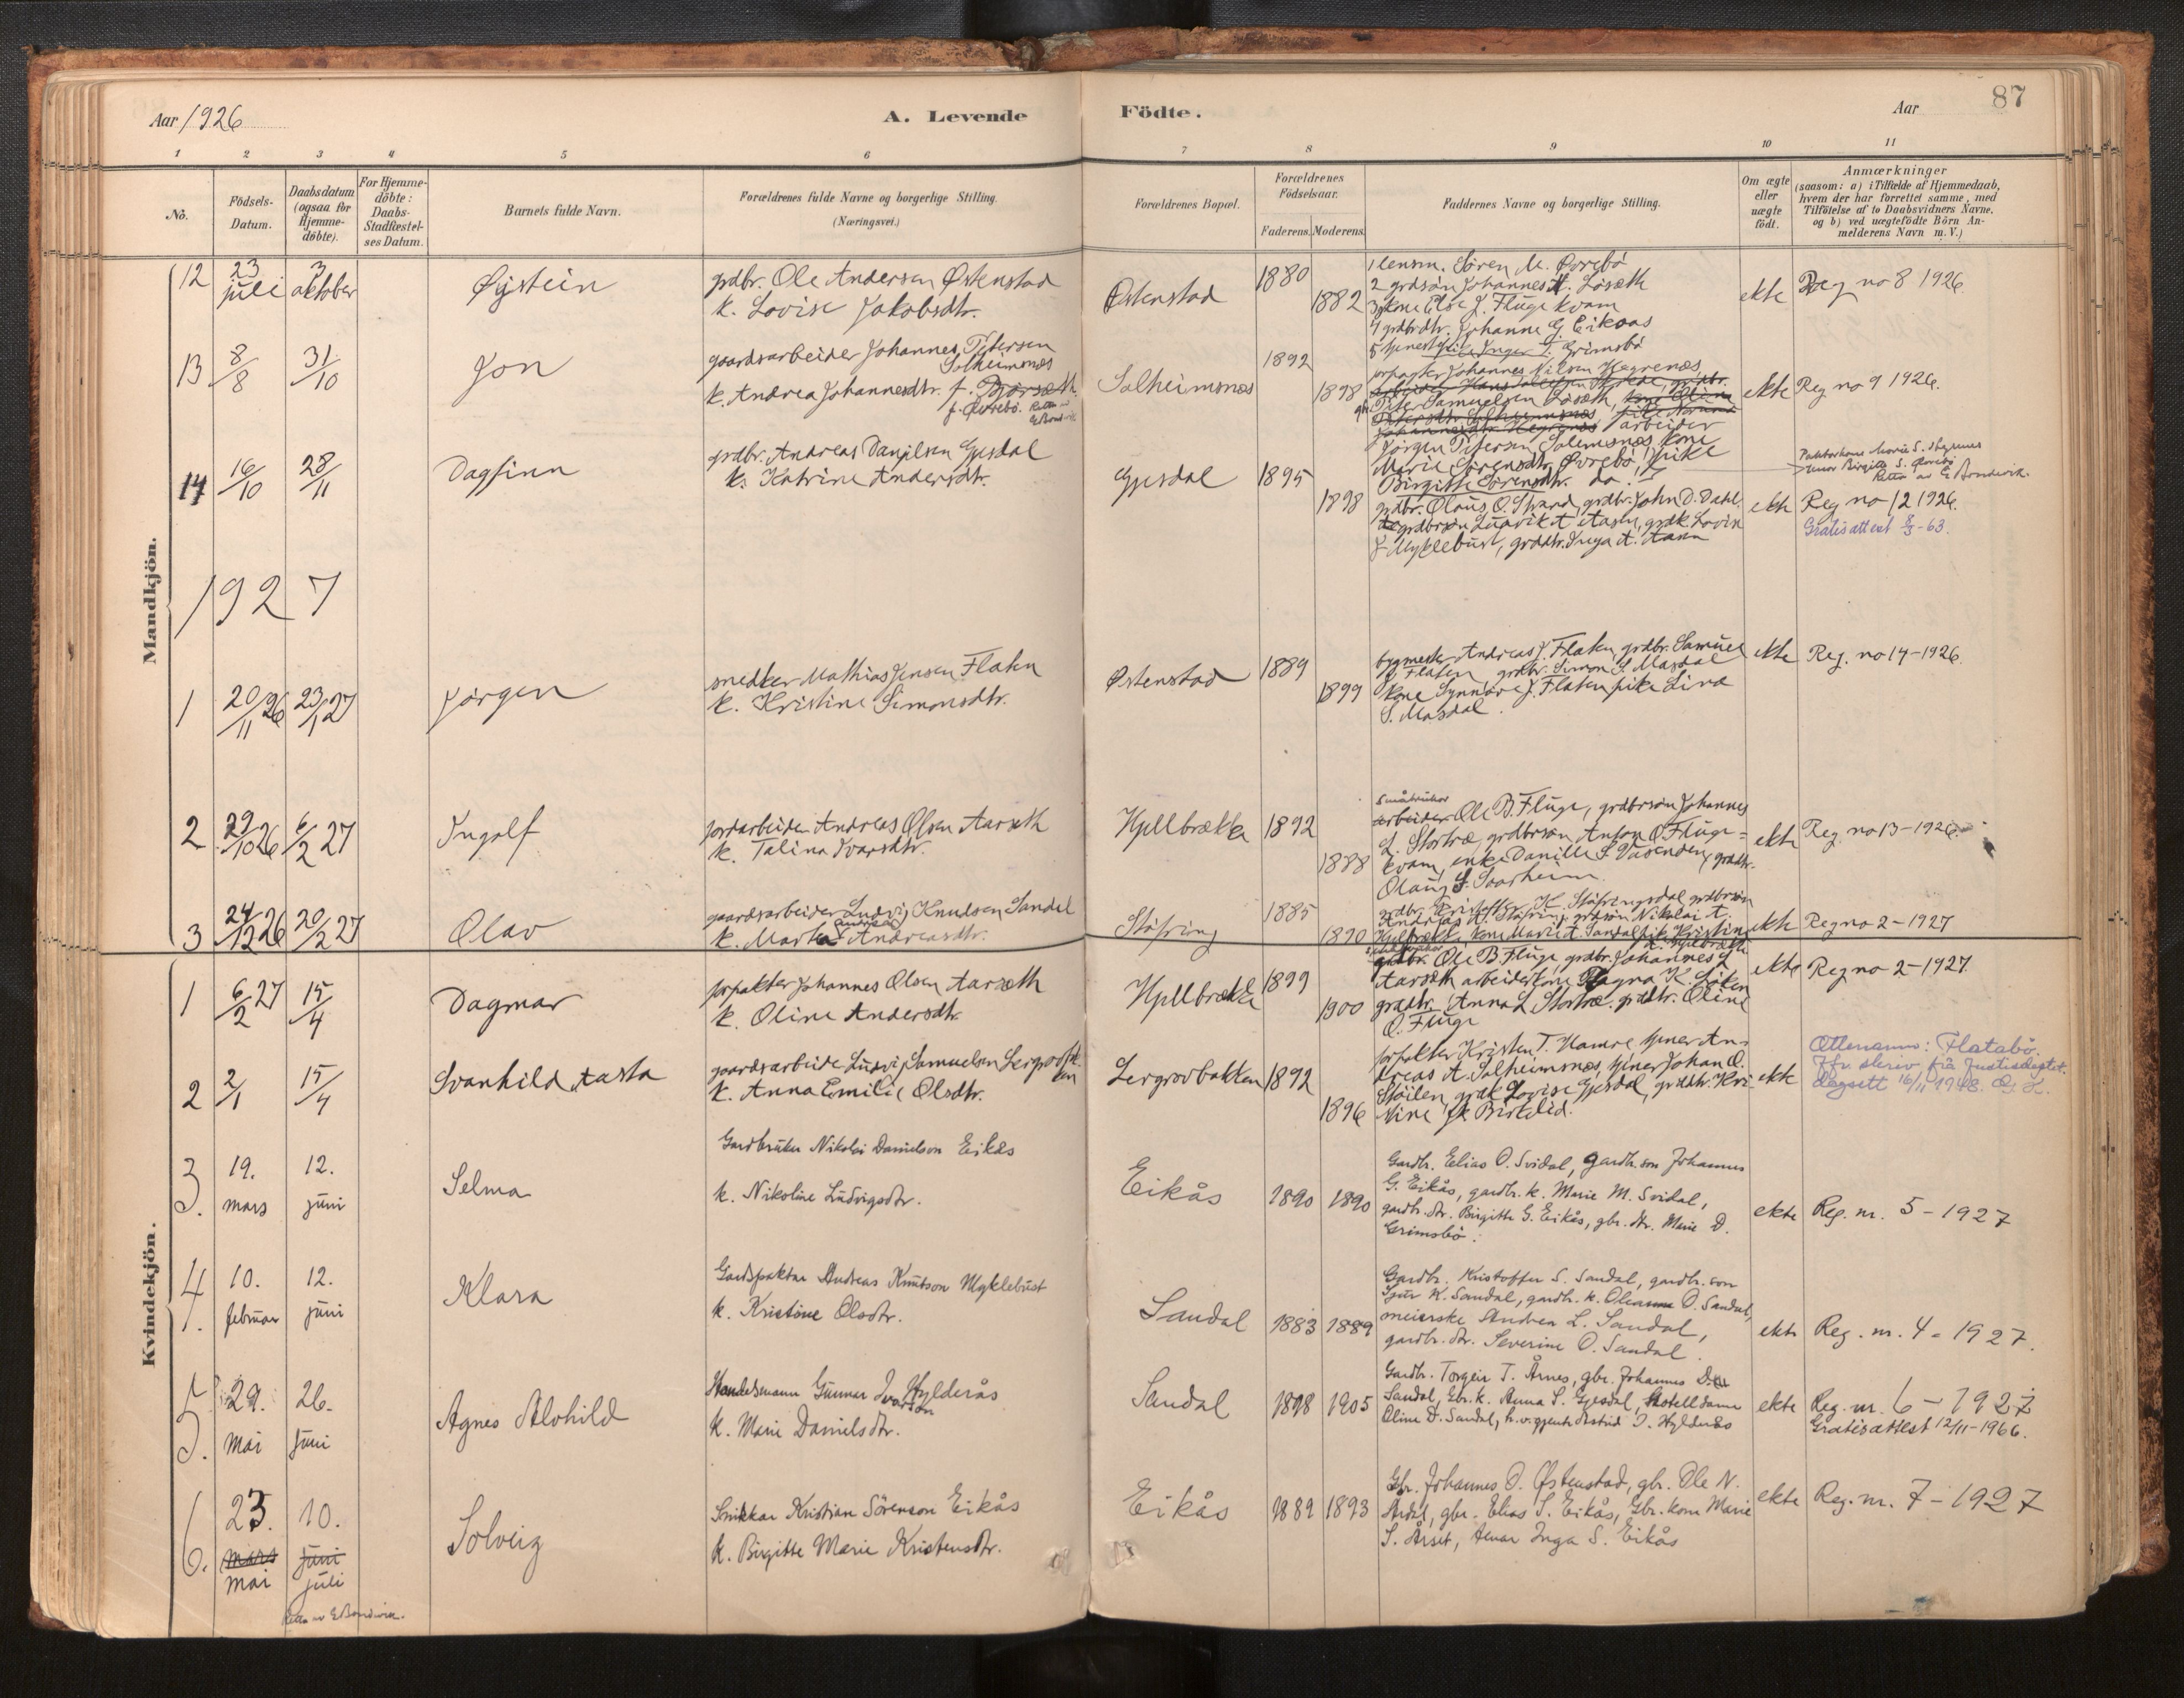 87
Aar 1926 A. Levende Födte. Aar
1 2 3 4 5 6 7 8 9 10 11
No.
Födsels-
Datum.
Daabsdatum
(ogsaa for
Hjemme-
döbte).
For Hjemme-
döbte:
Daabs-
Stadfæstel-
ses Datum.
Barnets fulde Navn.
Forældrenes fulde Navne og borgerlige Stilling.
(Næringsvei.)
Forældrenes Bopæl.
Forældrenes
Födselsaar.
Faderens. Moderens.
Faddernes Navne og borgerlige Stilling.
Om ægte
eller
uægte
födt.
Anmærkninger
(saasom: a) i Tilfælde af Hjemmedaab,
hvem der har forrettet samme, med
Tilföielse af to Daabsvidners Navne,
og b) ved uægtefödte Börn An-
melderens Navn m. V.)
Mandkjön.
12
23
juli
3
oktober
Øystein
grdbr. Ole Andersen Østenstad
k. Lovise Jakobsdtr.
Østenstad
1880
1882
1 lensm. Sören M. Övrebö
2 grdsön Johannes A. Löseth
3 kone Else J. Fluge kvam
4 grdbrdtr. Johanne G Eikaas
5 Grimsbö
ekte
Reg no 8 1926
13
8/8
31/10
Jon
gaardsarbeider Johannes Petersen
Solheimsnæs
k. Andrea Johannesdtr. f. Bjørseth
f. Øvrebö. Retta av
E Bondevik
Solheimsnæs
1892
1898
forpagter Johannes Nilsen Hegrenæs,
Peter Samuelsen Löseth,
arbeider
Jörgen Petersen Solemsnæs, kone
Marie Sörensdtr. Övrebö, pike
Birgitte Sörensdtr. do.
ekte
Reg no 9 1926.
Birgitte S. Övrebö
Retta av E Bondevik.
14
16/10
28/11
Dagfinn
grdbr. Andreas Danjelsen Gjesdal
k. Katrine Andersdtr.
Gjesdal
1895
1898
grdbr. Olaus O. Strand, grdbr. John D. Dahl.
grdbrsön Ludvik A Aasen, grdk. Lovise
J Myklebust, grddtr. Inga A. Aasen
ekte
Reg no 12 1926.
Gratisattest 8/3-63.
1927
1
20/11 26
23/1 27
Jörgen
snedker Mathias Jensen Flaten
k. Kristine Simonsdtr.
Østenstad
1889
1899
bygmester Andreas J. Flaten, grdbr. Samuel
J Flaten grdbr. Simon S. Masdal
kone Synnöve J. Flaten pike Lina
S. Masdal.
ekte
Reg. no 14-1926.
2
29/10 26
6/2 27
Ingolf
jordarbeider Andreas Olsen Aarseth
k. Talina Ivarsdtr.
Hjellbrekke
1892
1888
Småbrukar
arbeider Ole B. Fluge, grdbrsön Johannes
L. Stortræ, grdbrsön Anton O Fluge=
kvam, enke Danille S. Vasenden, grddtr.
Olaug S. Svarheim.
ekte
Reg. no 13-1926.
3
24/12 26
20/2 27
Olav
gaardsarbeider Ludvig Knudsen Sandal
Andrea
k. Marta Andreasdtr.
Støfring
1885
1890
grdbr. Kristoffer K. Støfringsdal, grdbrsön
Andreas A. Støfring, grdsön Nikolai A.
Hjelbrekke, kone Marie A. Sandal, pike Kristine
ekte
Reg no 2-1927
Kvindekjön.
1
6/2 27
15/4
Dagmar
forpakter Johannes Olsen Aarseth
k. Oline Andersdtr.
Hjellbrekke
1899
1900
grdbr. Ole B. Fluge grdbr. Johannes L
Aarseth arbeiderkone Magna K. Löken
grddtr. Anna L Stortræ. grddtr. Oline
O. Fluge
ekte
Reg no 2-1927.
2
2/1
15/4
Svanhild Aasta
gaardsarbeide Ludvig Samuelsen Lergrovbak
ken
k. Anna Emilie Olsdtr.
Lergrovbakken
1892
1896
forpakter Kristen T. Hamre tjener An-
dreas A. Solheimsnæs, tjener Johan O.
Støilen, grdk Lovise Gjesdal, grddtr. Kri-
stine Birkelid.
ekte
Ættenamn: Flatabö.
Jfr skriv frå Justisdeptet.
dagsett 16/11 1948.
3.
19.
mars
12.
juni
Selma
Gardbrukar Nikolai Danielson Eikås
k. Nikoline Ludvigsdtr.
Eikås
1890
1890
Gardbr. Elias O. Svidal, gardbr. son Johannes
G. Eikås, gardbr. k. Marie M. Svidal,
gardb. dtr. Birgitte G. Eikås, gbr. dtr. Marie D.
Grimsbö.
ekte
Reg. nr. 5-1927
4.
10.
februar
12.
juni
Klara
Gardspaktar Andreas Knutson Myklebust
k. Kristine Olsdtr.
Sandal
1883
1889
Gardbr. Kristoffer S. Sandal, gardbr. son
Sjur K. Sandal, gardb. k. Oleanna O. Sandal,
meierske Andrea L. Sandal,
gardbr. dtr. Severine O. Sandal.
ekte
Reg. nr. 4-1927.
5.
29.
mai
26.
juni
Agnes Alvhild
Handelsmann Gunnar Ivarson Hyldnås
k. Marie Danielsdtr.
Sandal
1898
1905
Gardbr. Torgeir T. Årnes, gbr. Johannes D.
Sandal, Gbr. k. Anna S. Gjesdal, Hotelldame
Oline D. Sandal, h.v. gjente Astrid I. Hyldnås
ekte
Reg. nr. 6-1927
Gratisattest 12/11-1966.
6.
23.
mars
mai
10.
juni
juli
Retta av E Bondevik.
Solveig
Snikkar Kristian Sörenson Eikås
k. Birgitte Marie Kristensdtr.
Eikås
1889
1893
Gbr. Johannes O. Østenstad, gbr. Ole N.
Årdal, gbr. Elias S. Eikås, Gbr. kone Marie
S. Årset, tenar Inga S. Eikås
ekte
Reg. nr. 7-1927